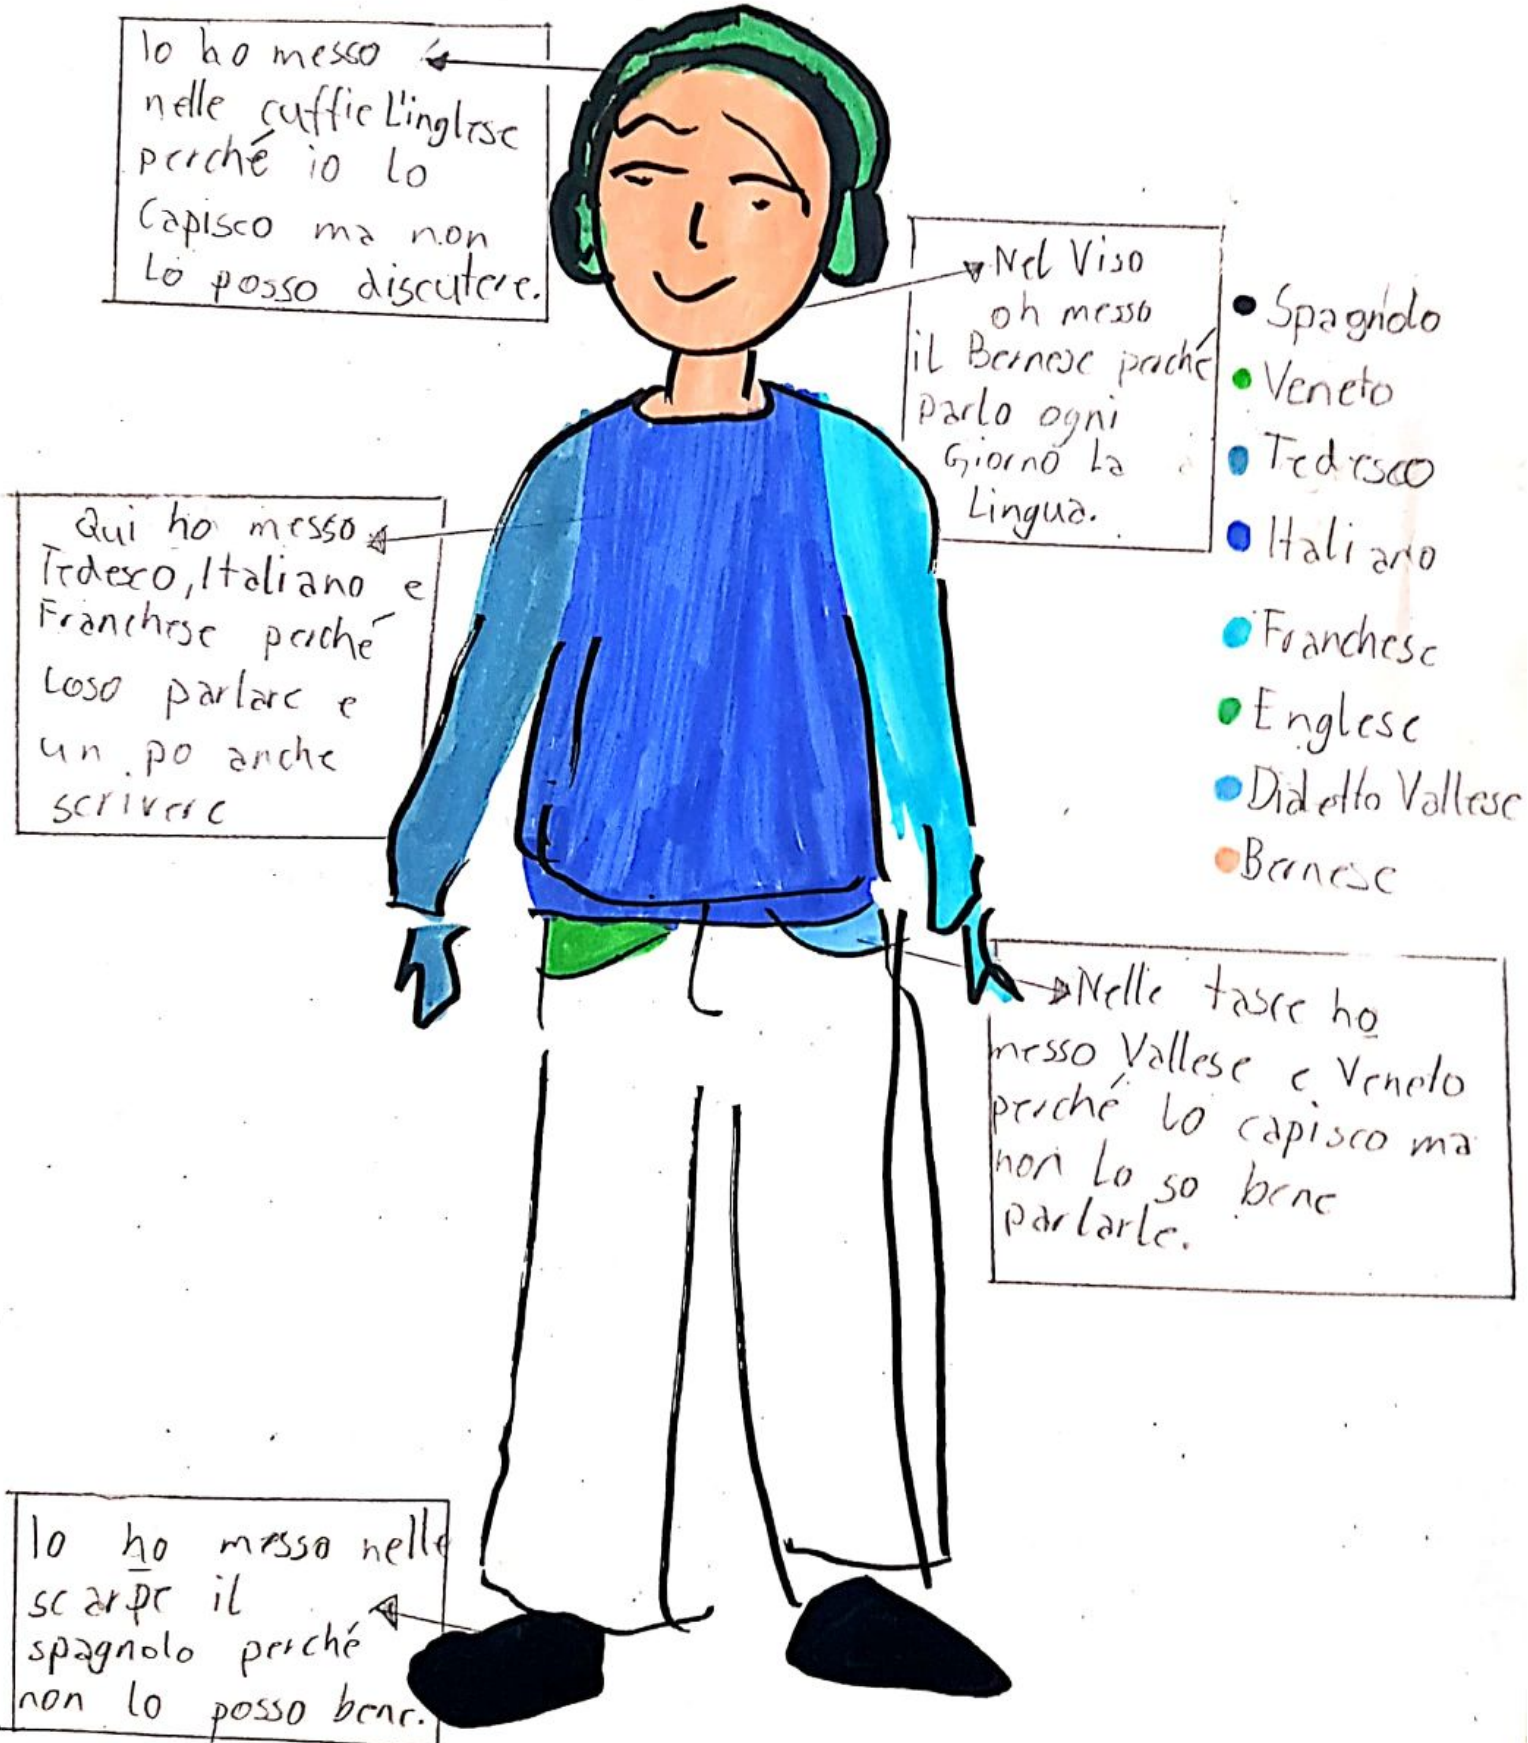 Io ho messo
nelle cuffie L'inglese
perché io lo
Capisco ma non
Lo posso discutere.
Nel Viso
oh messo
il Bernese perché
parlo ogni
Giorno La
Lingua.
Spagnolo
Veneto
Tedesco
Italiano
Franchese
Englese
Dialetto Vallese
Bernese
Qui ho messo
Tedesco, Italiano e
Franchese perché
Loso parlare e
un po anche
scrivere
Nelle tasce ho
messo Vallese e Veneto
perché lo capisco ma
non Lo so bene
parlarle.
Io ho messo nelle
scarpe il
spagnolo perché
non lo posso bene.